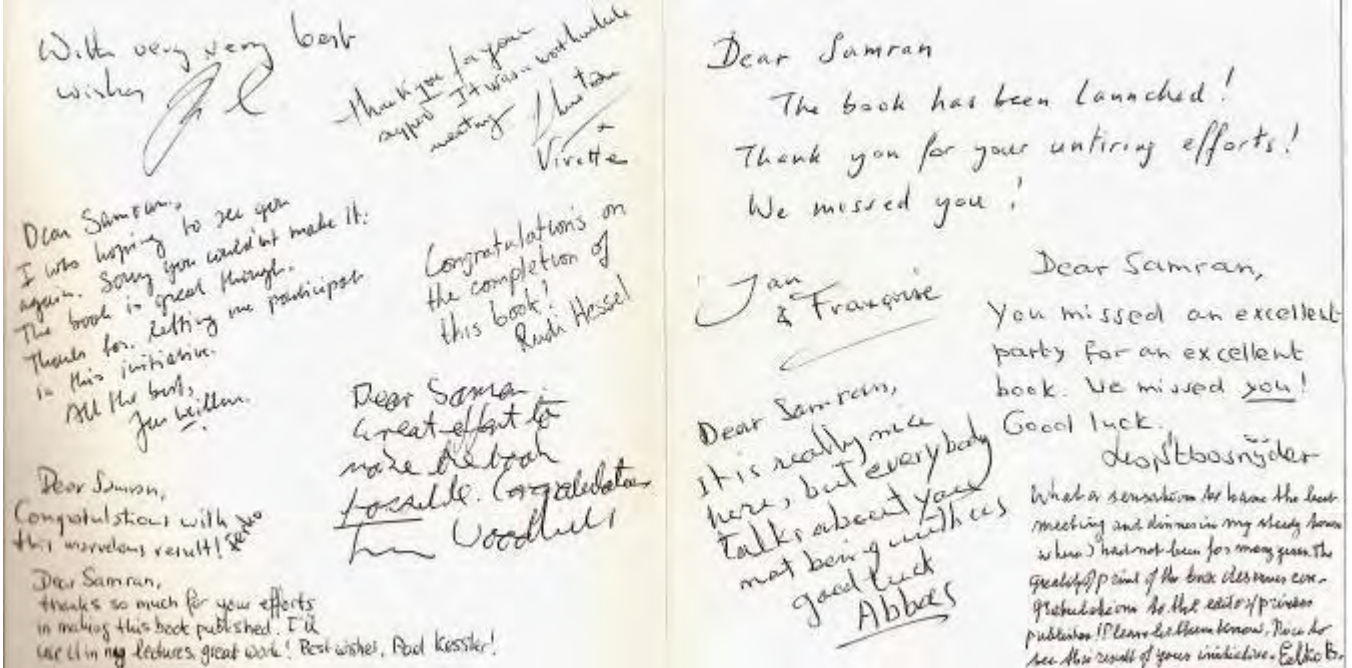 With very very best
wishes
Thank you for your
support. It was a worthwhile
meeting
+
Virette
Dear Samran,
I was hoping to see you
again. Sorry you couldn't make it.
The book is great though.
Thanks for letting me participate
in this initiative.
All the best,
Jan Willem.
Congratulations on
the completion of
this book!
Rudi Hessel
Dear Samran
Great effort to
make the book
possible. Congratulations
Woodhill
Dear Samran,
Congratulations with
this marvelous result!
Dear Samran,
thanks so much for your efforts
in making this book published. I'll
use it in my lectures, great work! Best wishes, Paul Kessler!
Dear Samran
The book has been launched!
Thank you for your untiring efforts!
We missed you!
Jan
& Françoise
Dear Samran,
You missed an excellent
party for an excellent
book. We missed you!
Good luck.
Dear Samran,
it is really nice
here, but everybody
talks about you
not being with us
good luck
Abbas
What a sensation to have the last
meeting and dinner in my study house
where I had not been for many years. The
great of print of the book deserves con-
gratulations to the editor/printer
publisher! Please let them know. Nice to
see this result of your initiative.